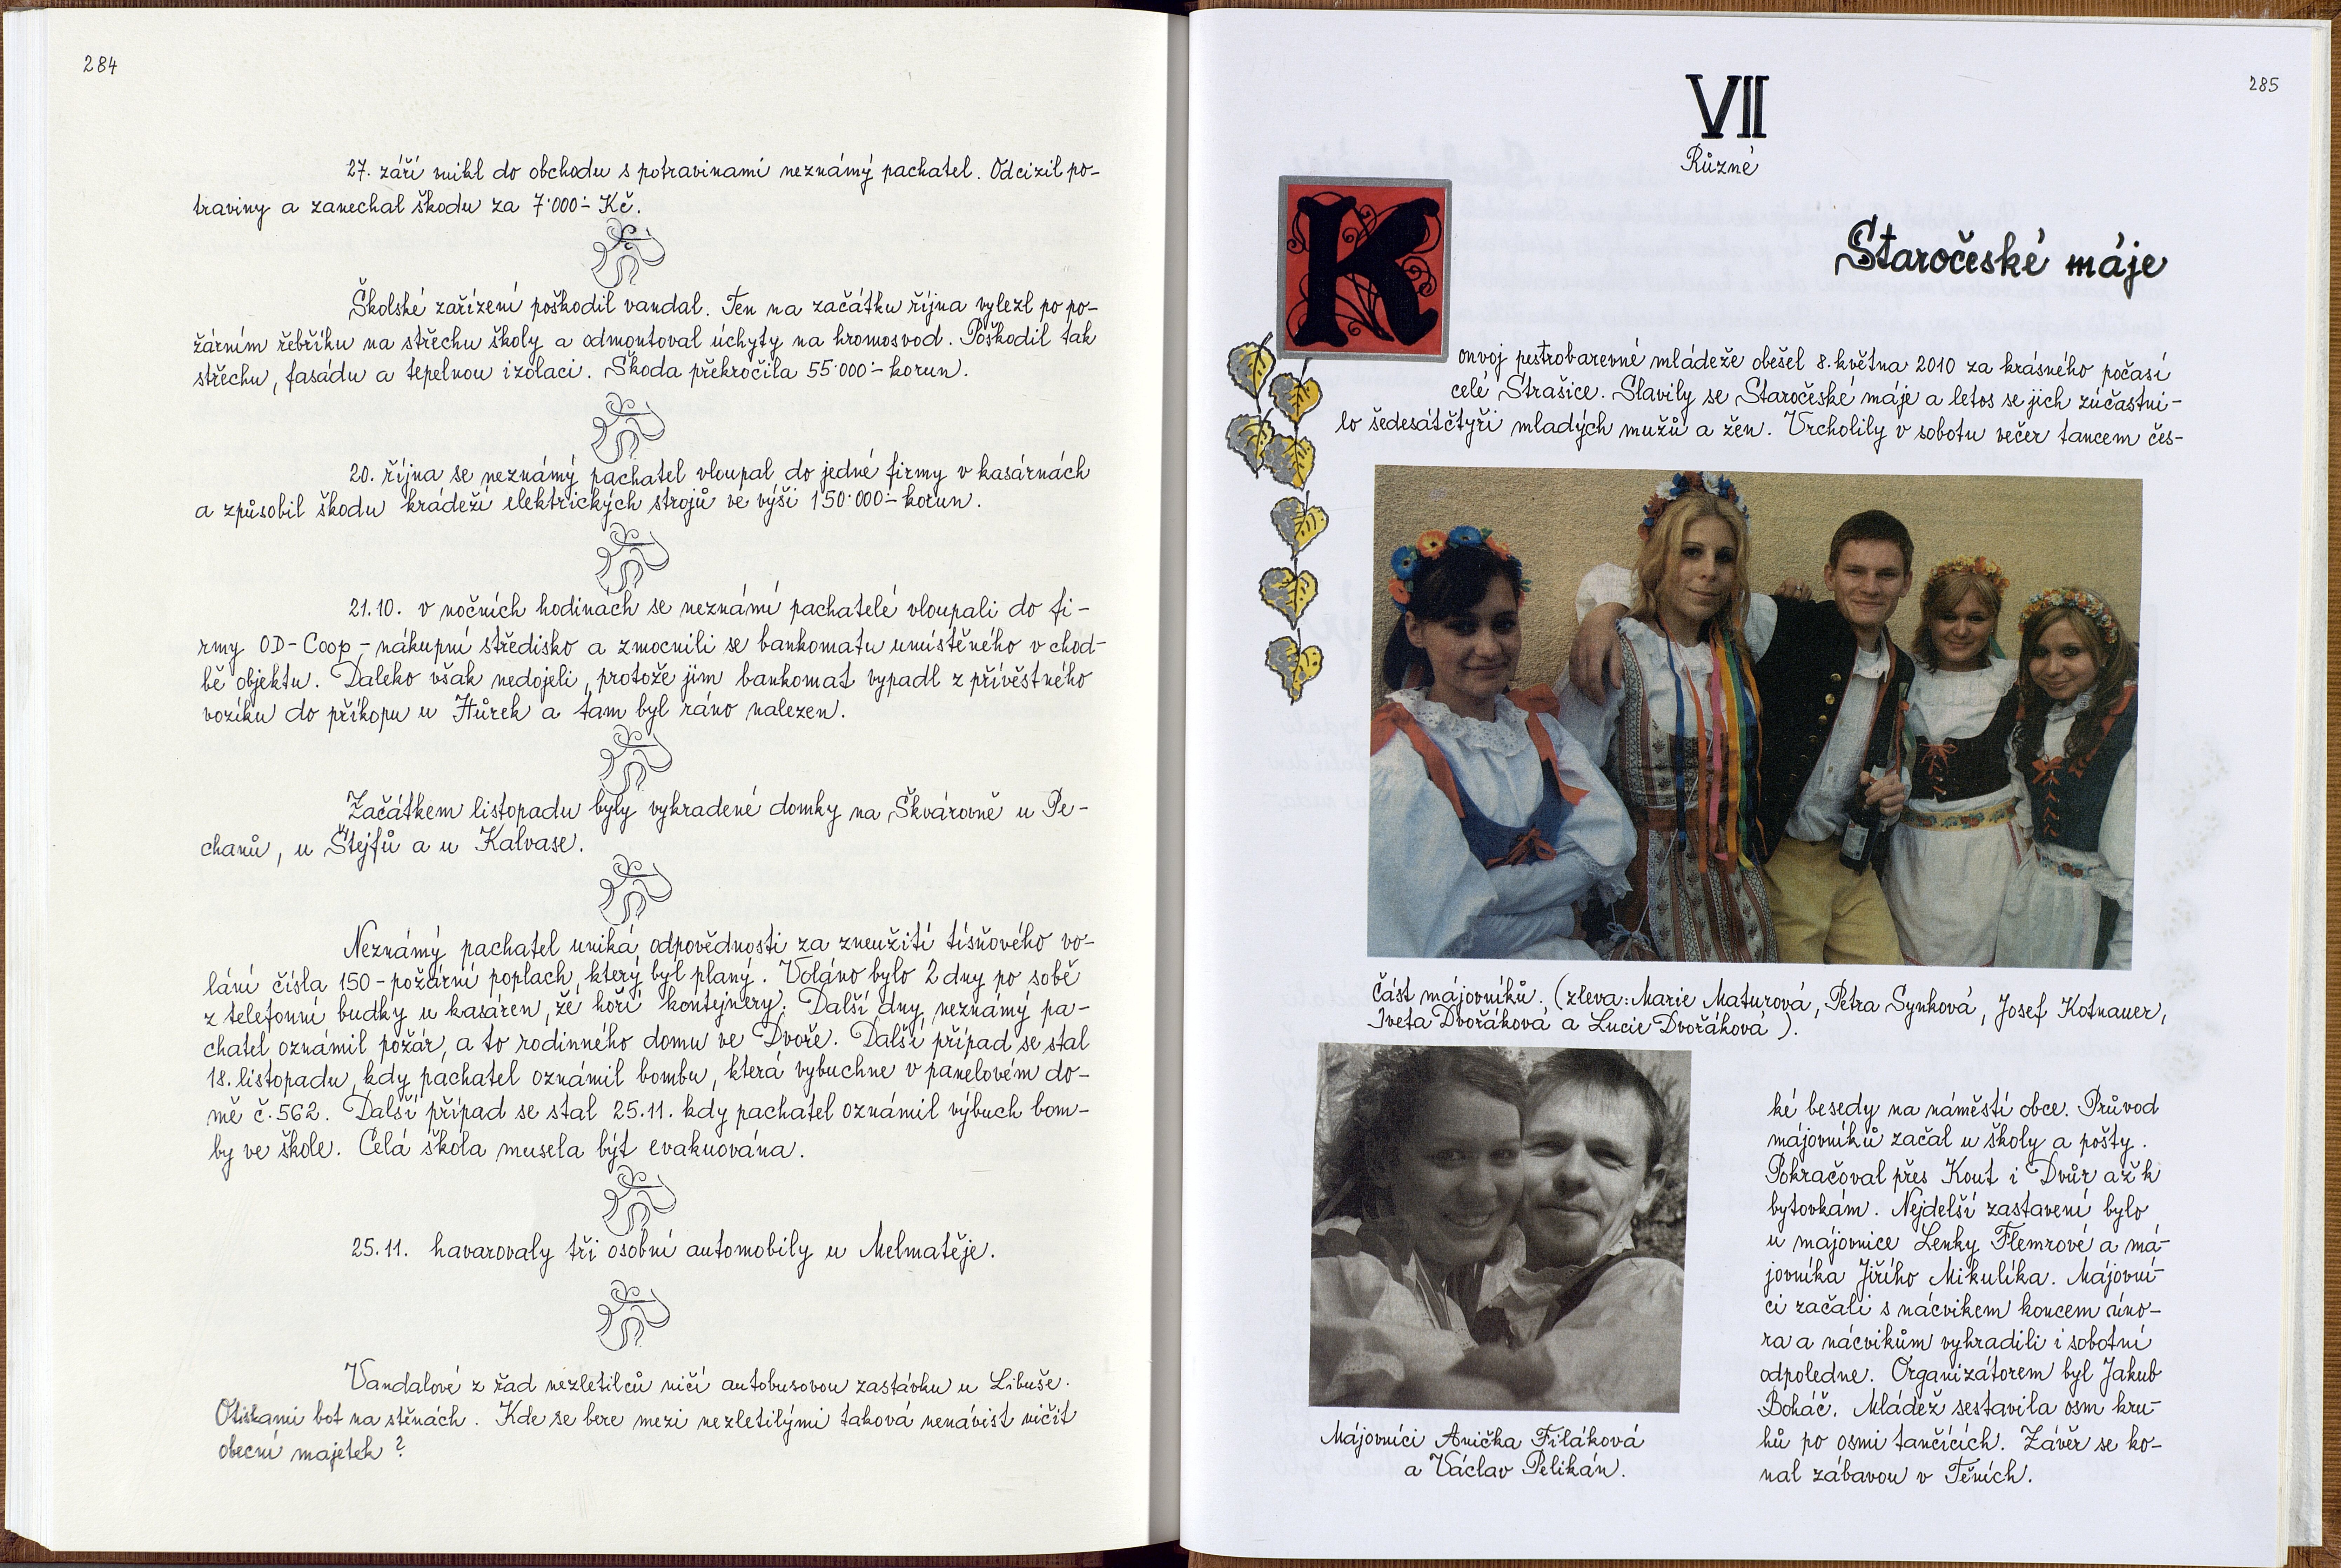 284
27. září vnikl do obchodu s potravinami neznámý pachatel. Odcizil po-
traviny a zanechal škodu za 7'000.- Kč.
Školské zařízení poškodil vandal. Ten na začátku října vylezl po po-
žárním řebříku na střechu školy a odmontoval úchyty na hromosvod. Poškodil tak
střechu, fasádu a tepelnou izolaci. Škoda překročila 55'000.- korun.
20. října se neznámý pachatel vloupal do jedné firmy v kasárnách
a způsobil škodu krádeží elektrických strojů ve výši 150'000.- korun.
21.10. v nočních hodinách se neznámí pachatelé vloupali do fi-
rmy OD-Coop - nákupní středisko a zmocnili se bankomatu umístěného v chod-
bě objektu. Daleko však nedojeli, protože jim bankomat vypadl z přívěstného
vozíku do příkopu u Hůrek a tam byl ráno nalezen.
Začátkem listopadu byly vykradené domky na Škvárovně u Pe-
chanů, u Štejfů a u Kalvase.
Neznámý pachatel uniká odpovědnosti za zneužití tísňového vo-
lání čísla 150 - požární poplach, který byl planý. Voláno bylo 2 dny po sobě
z telefonní budky u kasáren, že hoří kontejnery. Další dny neznámý pa-
chatel oznámil požár, a to rodinného domu ve Dvoře. Další případ se stal
18. listopadu, kdy pachatel oznámil bombu, která vybuchne v panelovém do-
mě č. 562. Další případ se stal 25.11. kdy pachatel oznámil výbuch bom-
by ve škole. Celá škola musela být evakuována.
25.11. havarovaly tři osobní automobily u Melmatěje.
Vandalové z řad nezletilců ničí autobusovou zastávku u Libuše.
Otiskami bot na stěnách. Kde se bere mezi nezletilými taková nenávist ničit
obecní majetek?
285
VII
Různé
Staročeské máje
Konvoj pestrobarevné mládeže obešel 8. května 2010 za krásného počasí
celé Strašice. Slavily se Staročeské máje a letos se jich zúčastni-
lo šedesátčtyři mladých mužů a žen. Vrcholily v sobotu večer tancem čes-
Část májovníků. (zleva: Marie Maturová, Petra Synková, Josef Kotnauer,
Iveta Dvořáková a Lucie Dvořáková).
ké besedy na náměstí obce. Průvod
májovníků začal u školy a pošty.
Pokračoval přes Kout i Dvůr až k
bytovkám. Nejdelší zastavení bylo
u májovnice Lenky Flemrové a má-
jovníka Jiřího Mikulíka. Májovní-
ci začali s nácvikem koncem úno-
ra a nácvikům vyhradili i sobotní
odpoledne. Organizátorem byl Jakub
Boháč. Mládež sestavila osm kru-
hů po osmi tančících. Závěr se ko-
nal zábavou v Těních.
Májovníci Anička Filáková
a Václav Pelikán.